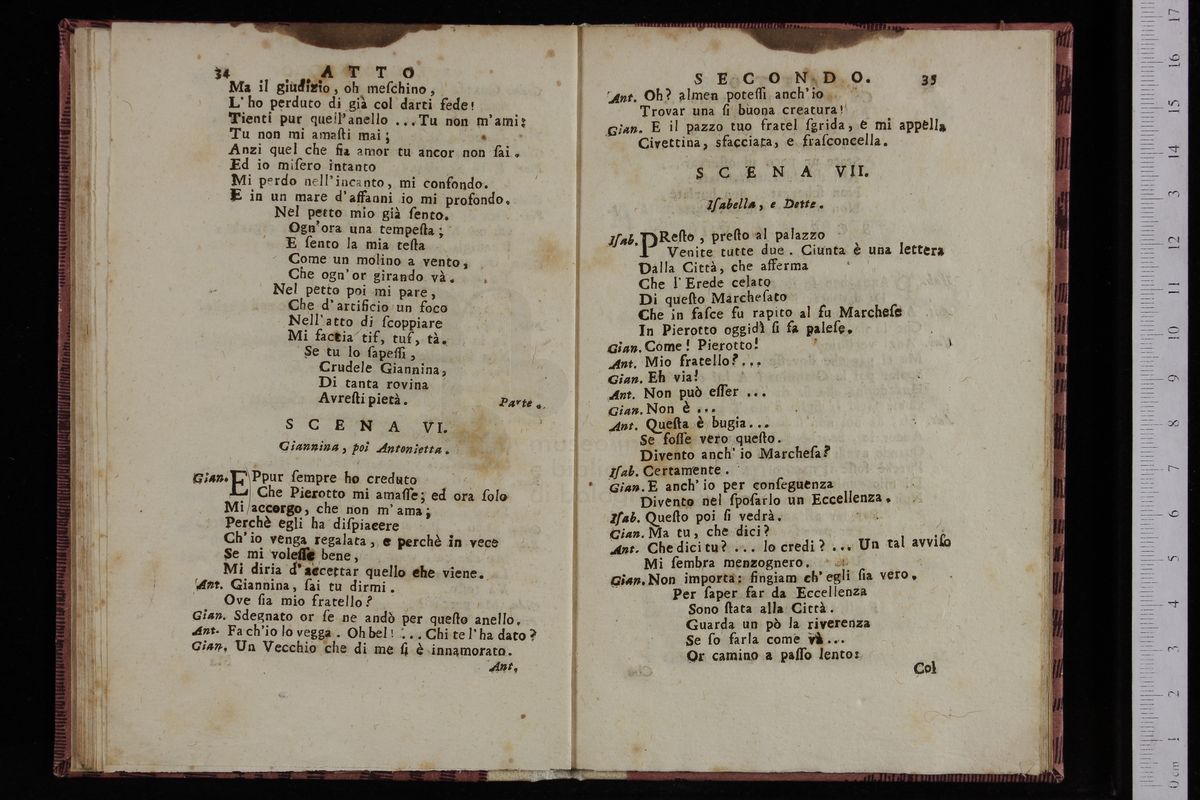 34 ATTO
Ma il giudizio, oh meſchino,
L'ho perduto di già col darti fede!
Tienti pur quell'anello ... Tu non m'ami;
Tu non mi amaſti mai;
Anzi quel che ſia amor tu ancor non ſai.
Ed io miſero intanto
Mi perdo nell'incanto, mi confondo.
E in un mare d'affanni io mi profondo.
Nel petto mio già ſento.
Ogn'ora una tempeſta;
E ſento la mia teſta
Come un molino a vento,
Che ogn'or girando và.
Nel petto poi mi pare,
Che d'artificio un foco
Nell'atto di ſcoppiare
Mi faccia tif, tuf, tà.
Se tu lo ſapeſſi,
Crudele Giannina,
Di tanta rovina
Avreſti pietà. Parte.
SCENA VI.
Giannina, poi Antonietta.
Gian. EPpur ſempre ho creduto
Che Pierotto mi amaſſe; ed ora ſolo
Mi accorgo, che non m'ama;
Perchè egli ha diſpiacere
Ch'io venga regalata, e perchè in vece
Se mi voleſſe bene,
Mi diria d'accettar quello che viene.
Ant. Giannina, ſai tu dirmi.
Ove ſia mio fratello?
Gian. Sdegnato or ſe ne andò per queſto anello.
Ant. Fa ch'io lo vegga. Oh bel! ... Chi te l'ha dato?
Gian. Un Vecchio che di me ſi è innamorato.
Ant.
SECONDO. 35
Ant. Oh? almen poteſſi anch'io
Trovar una ſi buona creatura!
Gian. E il pazzo tuo fratel ſgrida, e mi appella
Civettina, sfacciata, e fraſconcella.
SCENA VII.
Iſabella, e Dette.
Iſab. PReſto, preſto al palazzo
Venite tutte due. Giunta è una lettera
Dalla Città, che afferma
Che l'Erede celato
Di queſto Marcheſato
Che in faſce fu rapito al fu Marcheſe
In Pierotto oggidì ſi fa paleſe.
Gian. Come! Pierotto!
Ant. Mio fratello?...
Gian. Eh via!
Ant. Non può eſſer ...
Gian. Non è ...
Ant. Queſta è bugia...
Se foſſe vero queſto.
Divento anch'io Marcheſa?
Iſab. Certamente.
Gian. E anch'io per conſeguenza
Divento nel ſpoſarlo un Eccellenza.
Iſab. Queſto poi ſi vedrà.
Gian. Ma tu, che dici?
Ant. Che dici tu? ... lo credi? ... Un tal avviſo
Mi ſembra menzognero.
Gian. Non importa: fingiam ch'egli ſia vero.
Per ſaper far da Eccellenza
Sono ſtata alla Città.
Guarda un pò la riverenza
Se ſo farla come và...
Or camino a paſſo lento:
Col